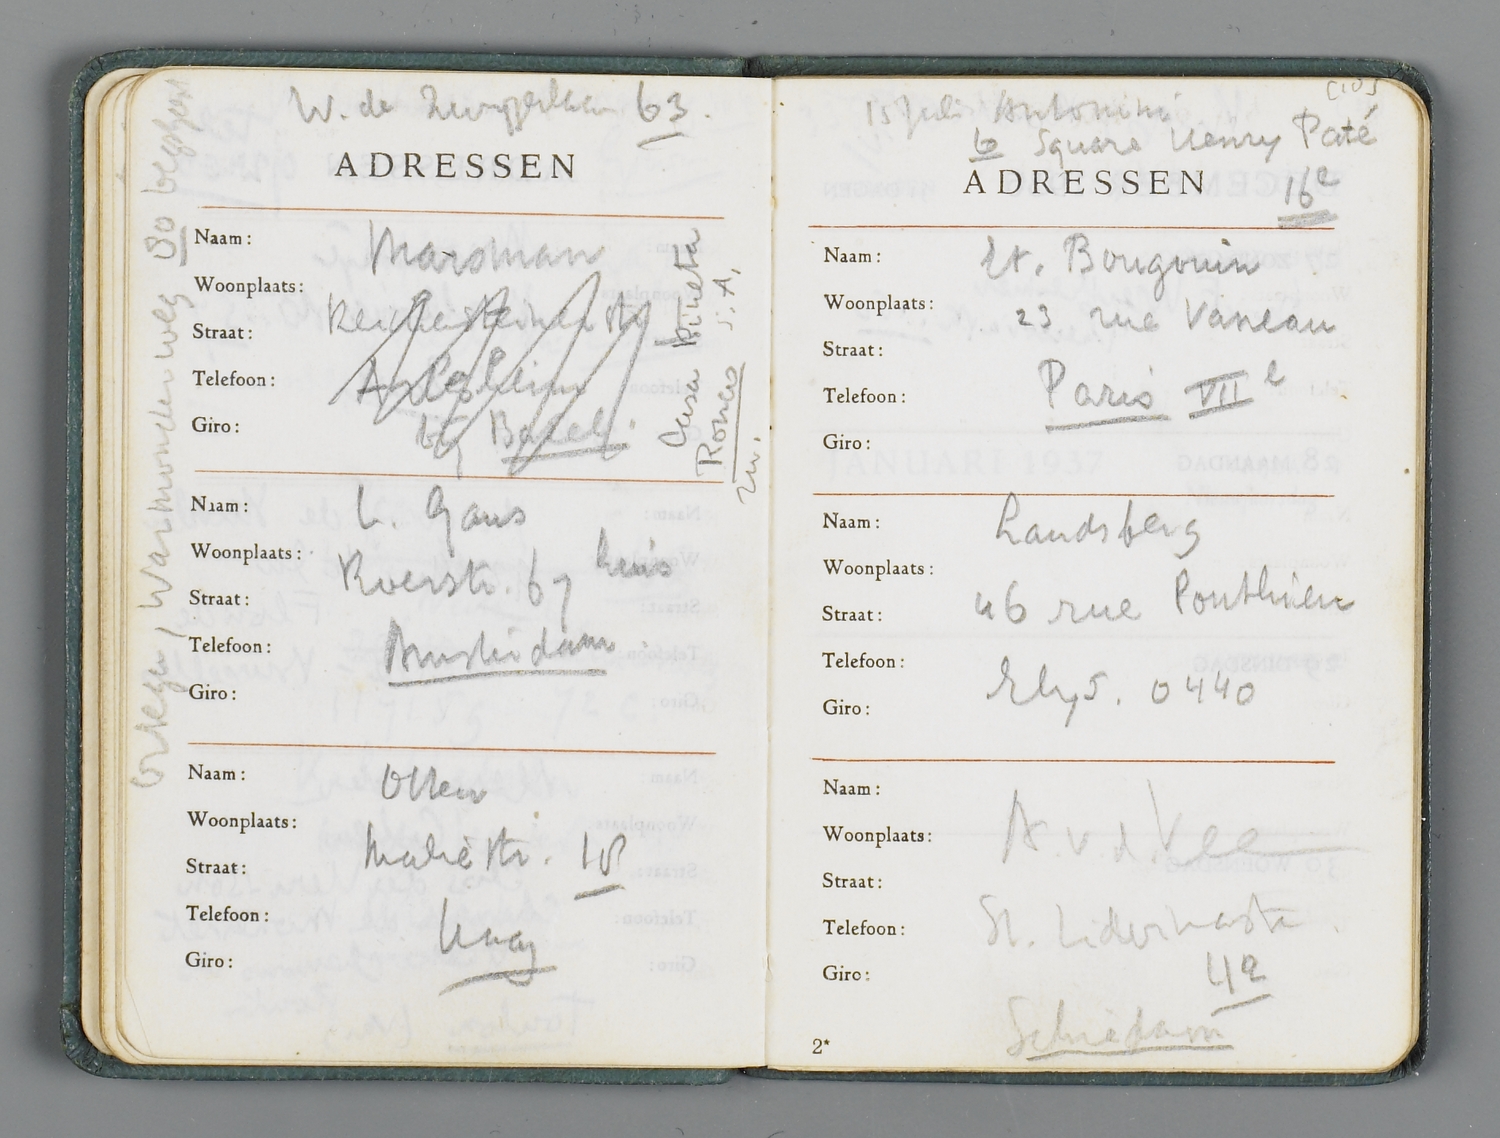 W. de 63.
ADRESSEN
Naam: Marsman
Woonplaats:
Straat:
Telefoon: Arlesheim
Giro: bij Basel.
Casa Pineta
Ronco s. A.
Zw.
Naam: L. Gans
Woonplaats:
Straat: Roerstr. 67 huis
Telefoon: Amsterdam
Giro:
Naam: Otten
Woonplaats:
Straat: Maliestr. 18
Telefoon:
Haag
Giro:
Warmonderweg 80
15 Juli Antonini
6 Square Henry Paté
ADRESSEN 16e
Naam: Et. Bougouin
Woonplaats: 23 rue Vaneau
Straat:
Telefoon: Paris VIIe
Giro:
Naam: Landsberg
Woonplaats:
Straat: 46 rue Ponthieu
Telefoon:
Giro: Elys. 0440
Naam:
Woonplaats: A. v. d. Vee
Straat:
Telefoon: St.
Giro: 4a
Schiedam
2*